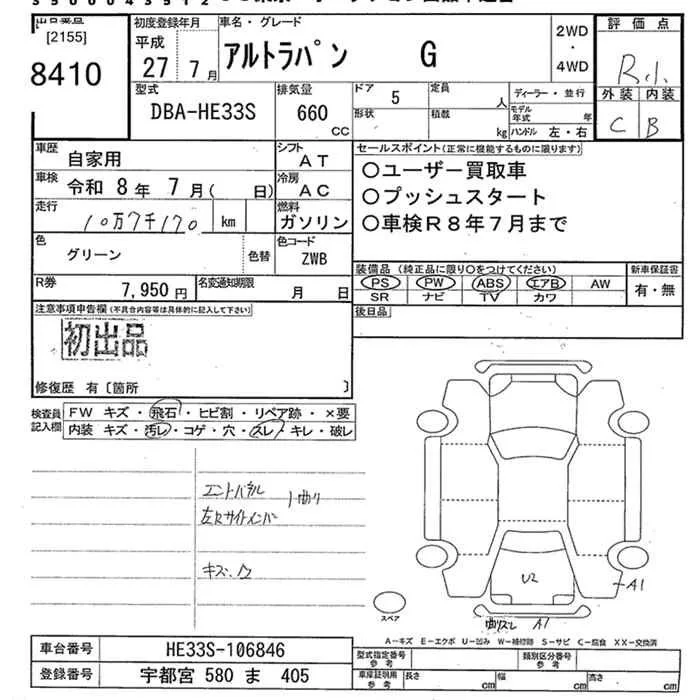 出品番号
[2155]
8410
初度登録年月
平成
27 7月
車名・グレード
アルトラパン G
2WD
・
4WD
評価点
R.1.
外装 内装
C B
型式
DBA-HE33S
排気量
660 CC
ドア 5
形状
定員 人
積載 kg
ディーラー・並行
モデル年式 年
ハンドル 左・右
車歴 自家用
シフト AT
セールスポイント(正常に機能するものに限ります)
〇ユーザー買取車
〇プッシュスタート
〇車検R8年7月まで
車検 令和 8年 7月( 日)
冷房 AC
走行 10万7千170 km
燃料 ガソリン
色 グリーン 色替
色コード ZWB
装備品(純正品に限り〇をつけてください)
PS PW ABS エアB AW
SR ナビ TV カワ
新車保証書
有・無
R券 7,950円
名変通知期限 月 日
後日品
注意事項申告欄(不具合内容等は具体的に記入して下さい)
初出品
修復歴 有〔箇所 〕
検査員記入欄
FW キズ・飛石・ヒビ割・リペア跡・×要
内装 キズ・汚レ・コゲ・穴・スレ・キレ・破レ
エンドパネル 曲り
左Rサイドメンバー
キズ、凹
U2
A1
曲スレ A1
スペア
A-キズ E-エクボ U-凹み W-補修跡 S-サビ C-腐食 XX-交換済
車台番号 HE33S-106846
登録番号 宇都宮 580 ま 405
型式指定番号 参考
類別区分番号 参考
車庫証明用 参考
長さ cm
幅 cm
高さ cm